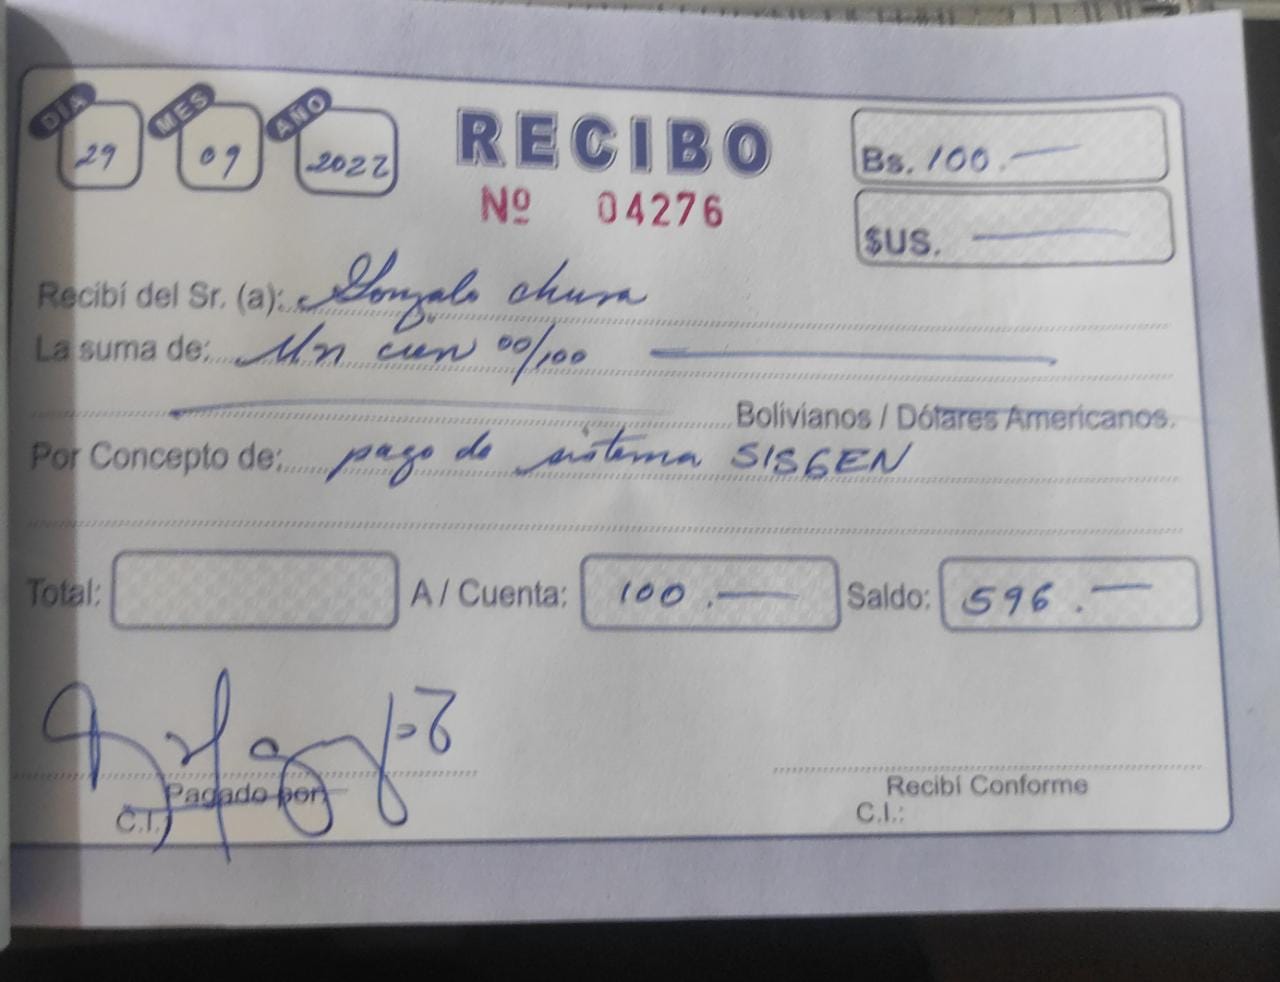 DÍA 29 MES 09 AÑO 2022
RECIBO
Nº 04276
Bs. 100.—
$US. —
Recibí del Sr. (a): Gonzalo chura
La suma de: Un cien 00/100
Bolivianos / Dólares Americanos.
Por Concepto de: pago de sistema SISGEN
Total:
A / Cuenta: 100.—
Saldo: 596.—
Pagado por
C.I.
Recibí Conforme
C.I.: